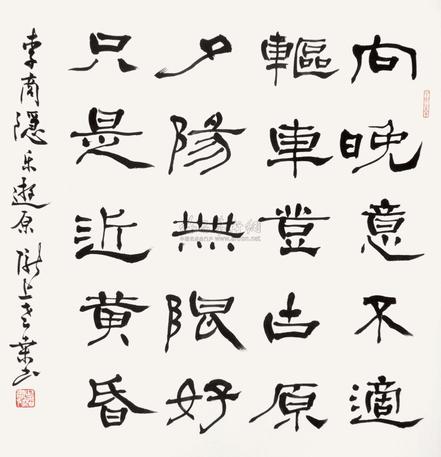 向晚意不適
驅車登古原
夕陽無限好
只是近黄昏
李商隱乐遊原